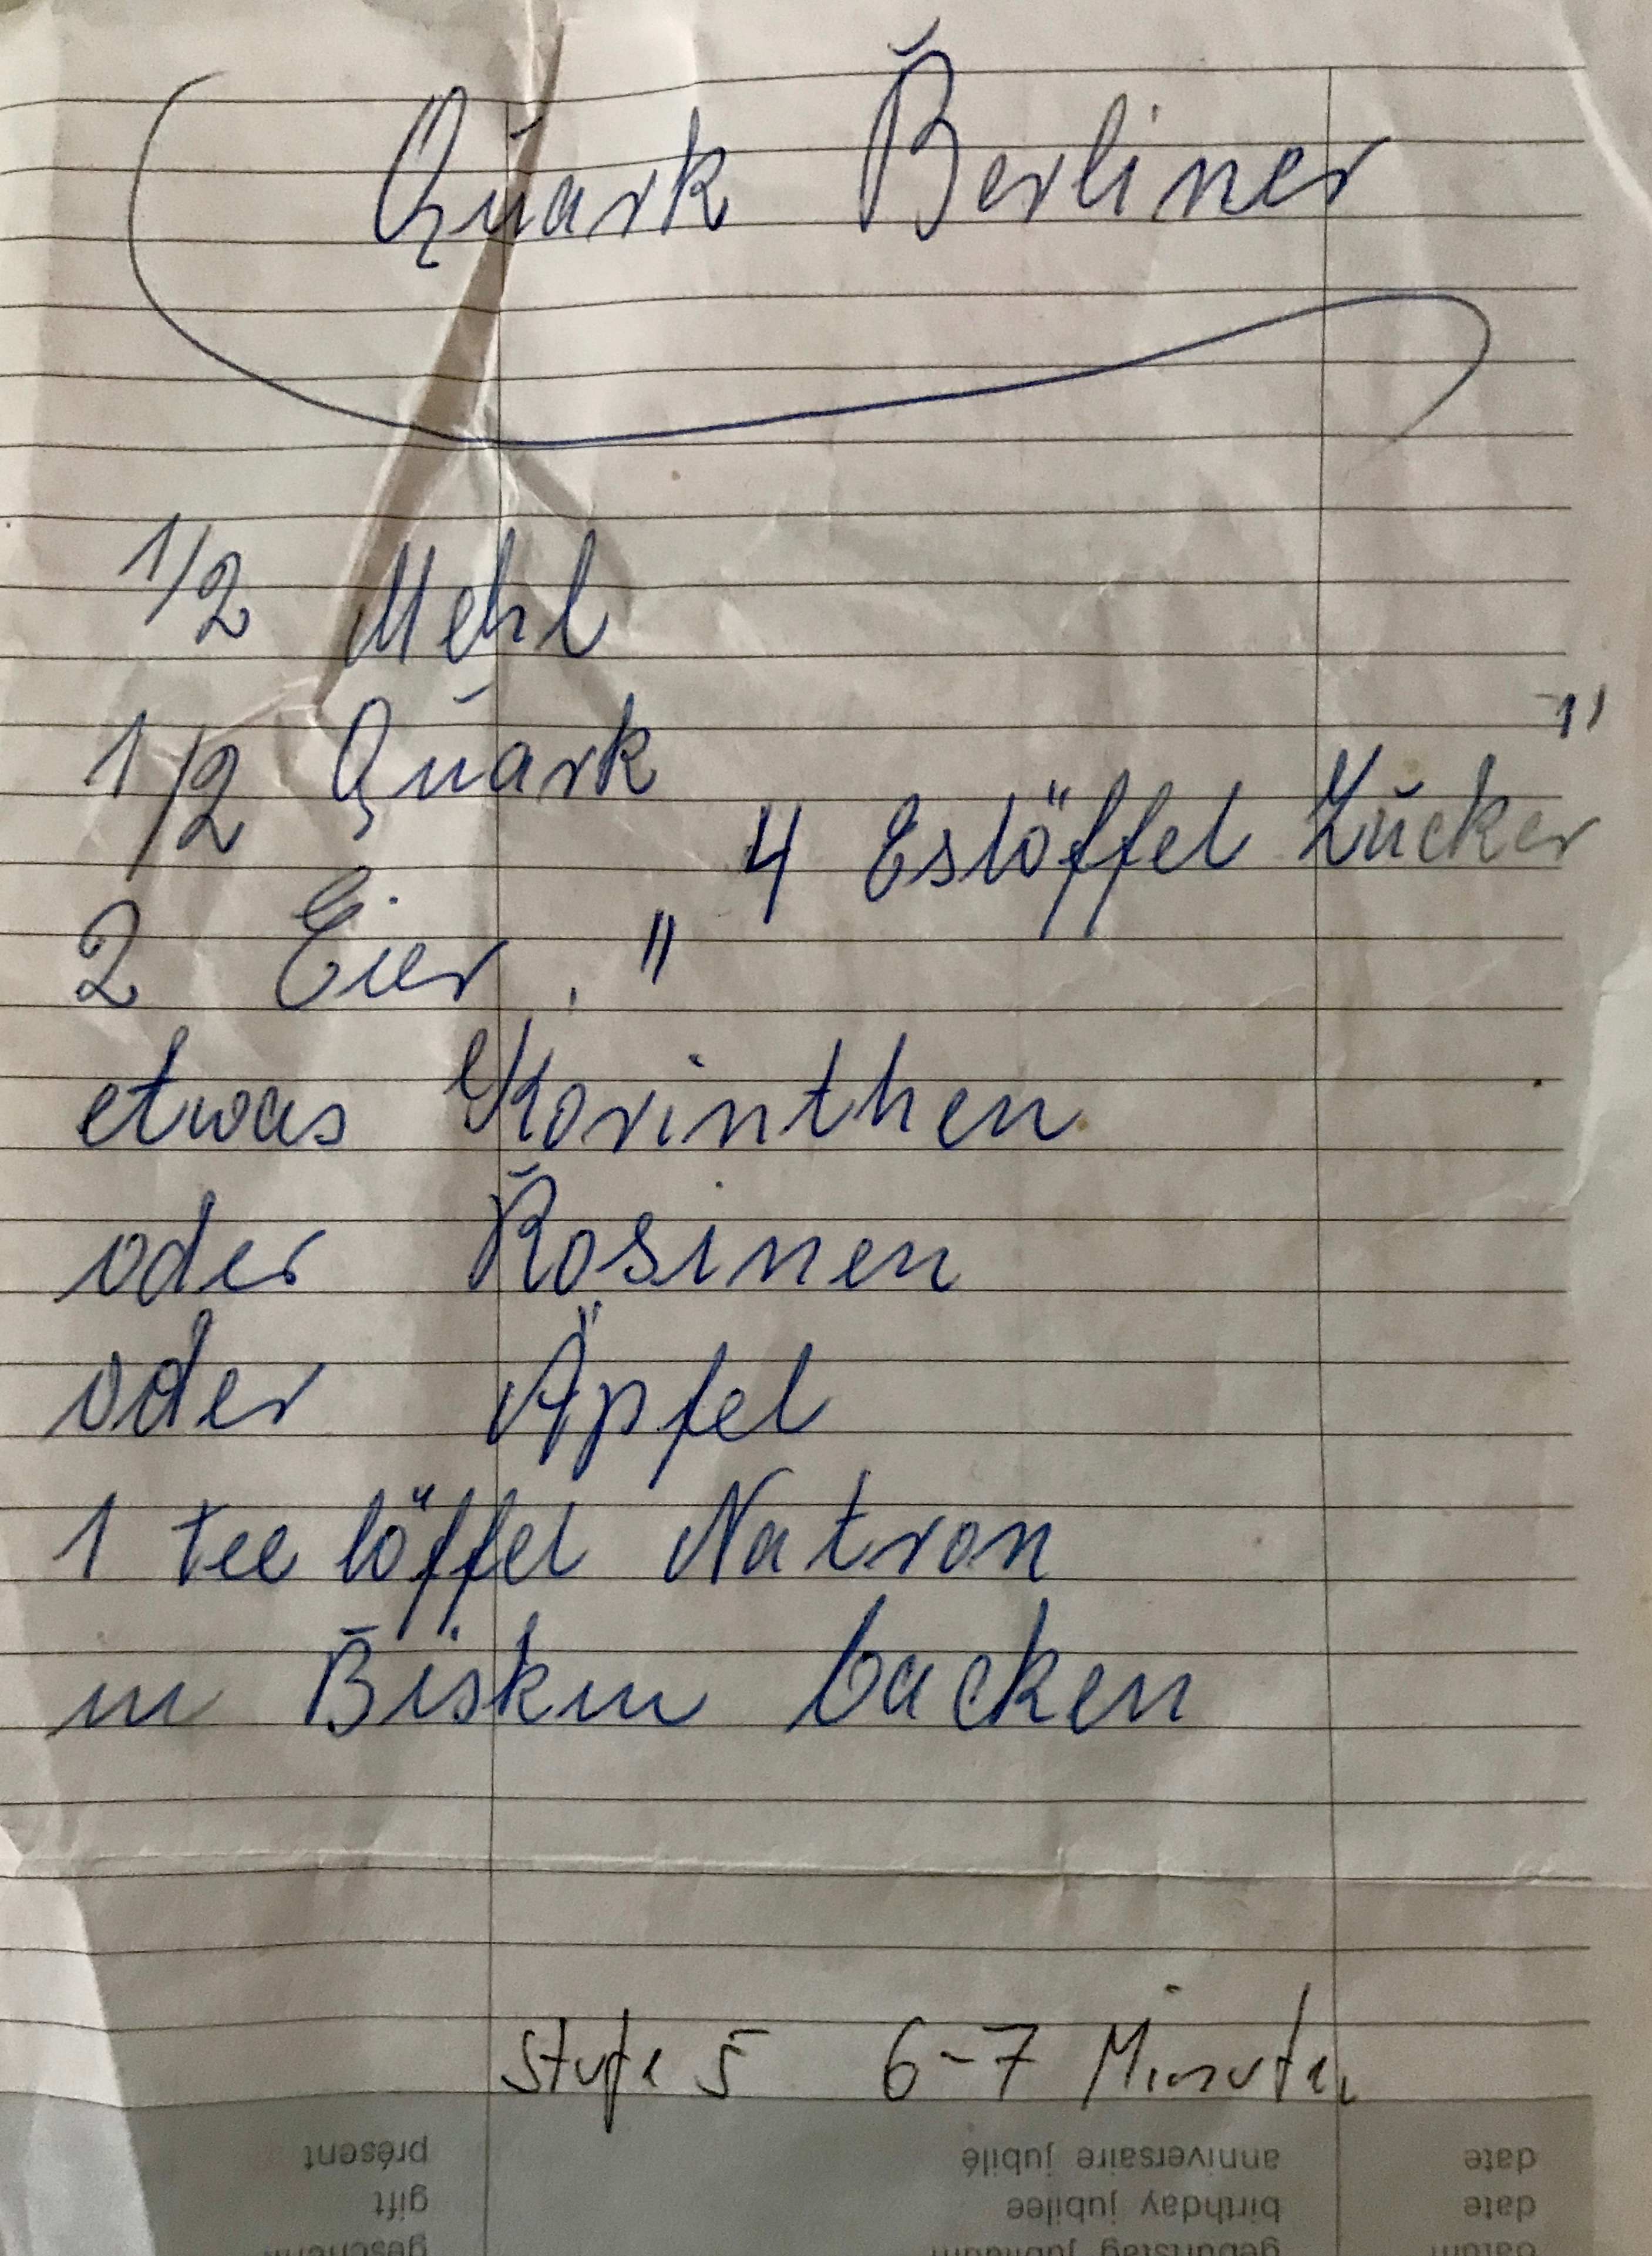 Quark Berliner
1/2 Mehl
1/2 Quark
4 Eslöffel Zucker "
2 Eier, "
etwas Korinthen
oder Rosinen
oder Äpfel
1 tee löffel Natron
in Biskin backen
Stufe 5 6-7 Minuten
présent anniversaire jubilé date
gift birthday jubilee date
geschenk geburtstag jubiläum datum